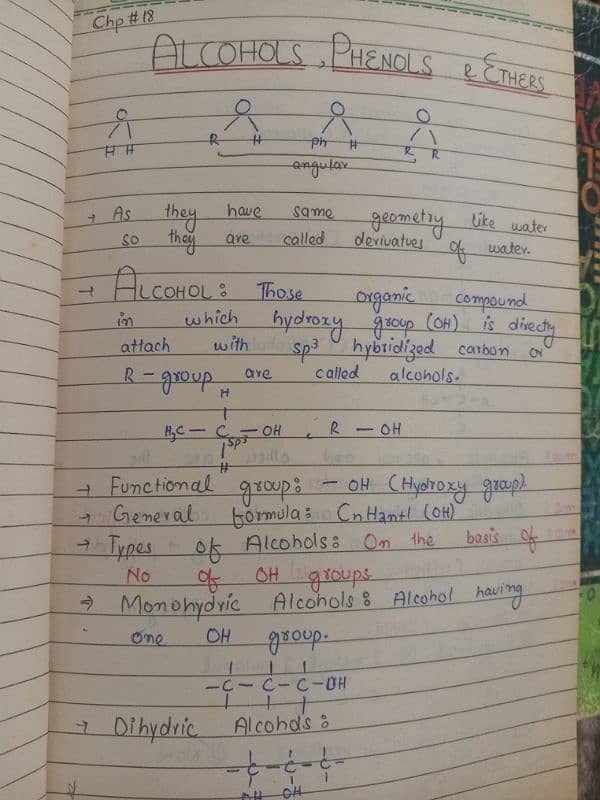 Chp # 18
ALCOHOLS, PHENOLS & ETHERS
O O O O
H H R H Ph H R R
angular
→ As they have same geometry like water
so they are called derivatues of water.
→ ALCOHOL: Those organic compound
in which hydroxy group (OH) is directly
attach with sp³ hybridized carbon or
R - group are called alcohols.
H
H₃C - C - OH , R - OH
sp³
H
→ Functional group: - OH (Hydroxy group)
→ General formula: CnH2n+1 (OH)
→ Types of Alcohols: On the basis of
No of OH groups
→ Monohydric Alcohols: Alcohol having
one OH group.
- C - C - C - OH
→ Dihydric Alcohols:
- C - C - C -
OH OH